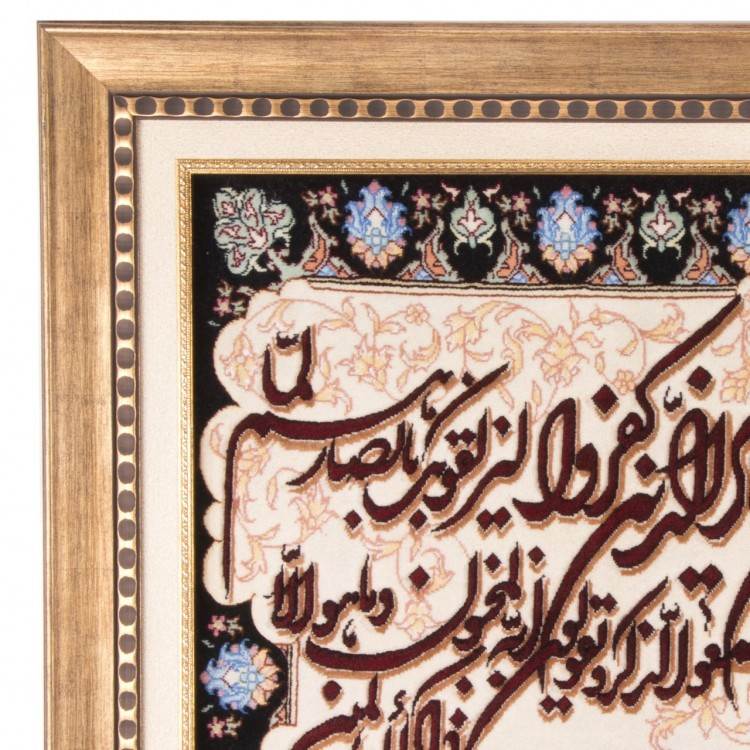 الذين كفروا ليزلقونك بابصارهم لمّا
سمعوا الذكر ويقولون انه لمجنون وما هو الّا
ذكر للعالمين